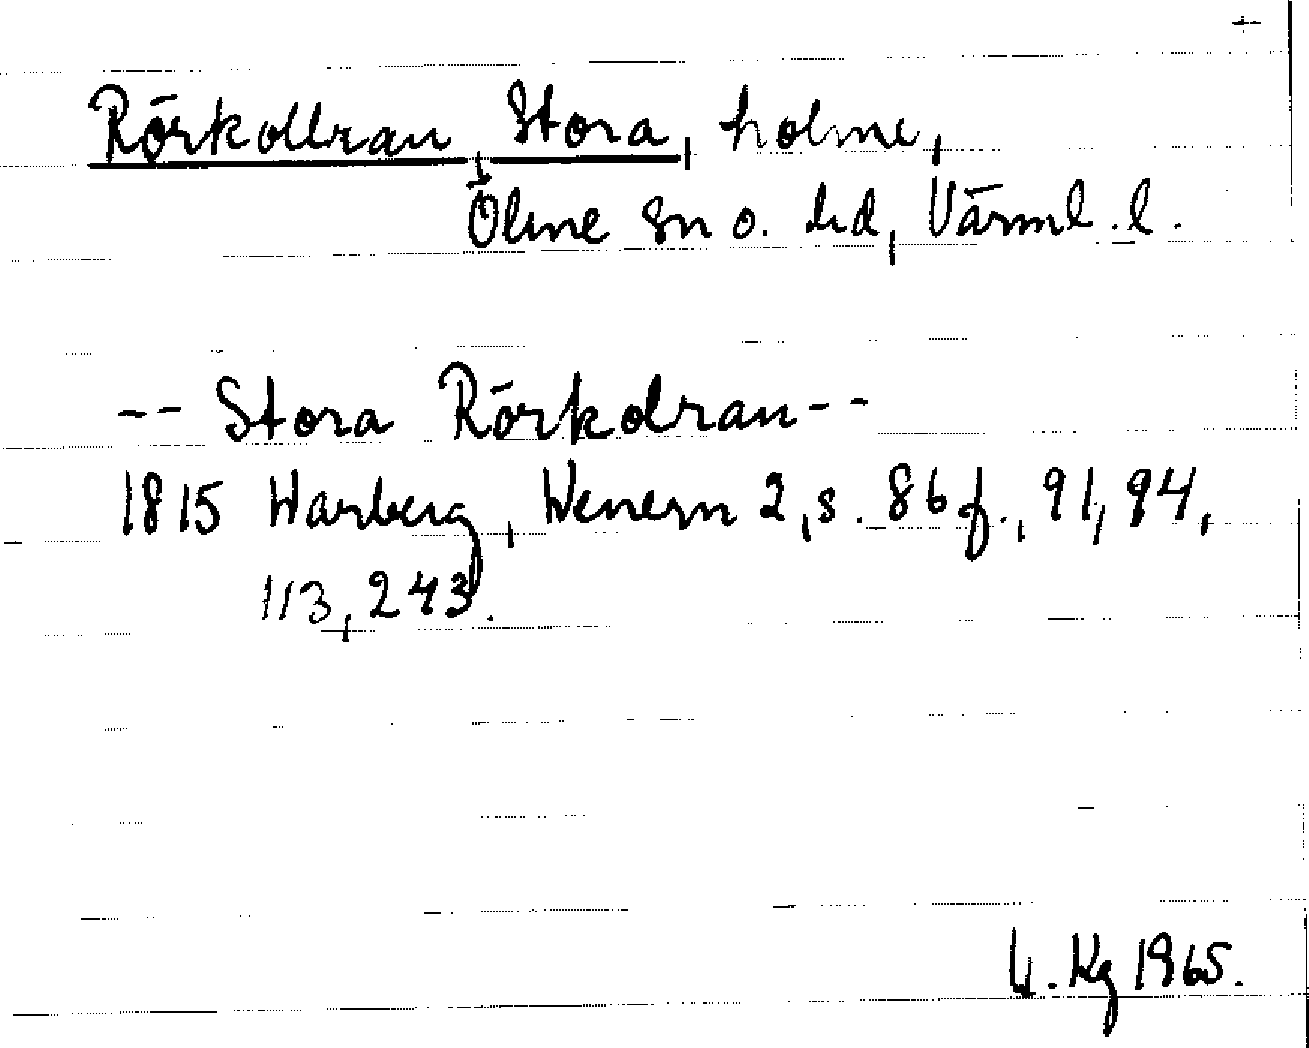 Rörkollran, Stora, holme,
Ölme sn o. hd, Värml. l.
-- Stora Rörkolran --
1815 Warberg, Wenern 2, s. 86 f., 91, 94,
113, 243.
Kg 1965.